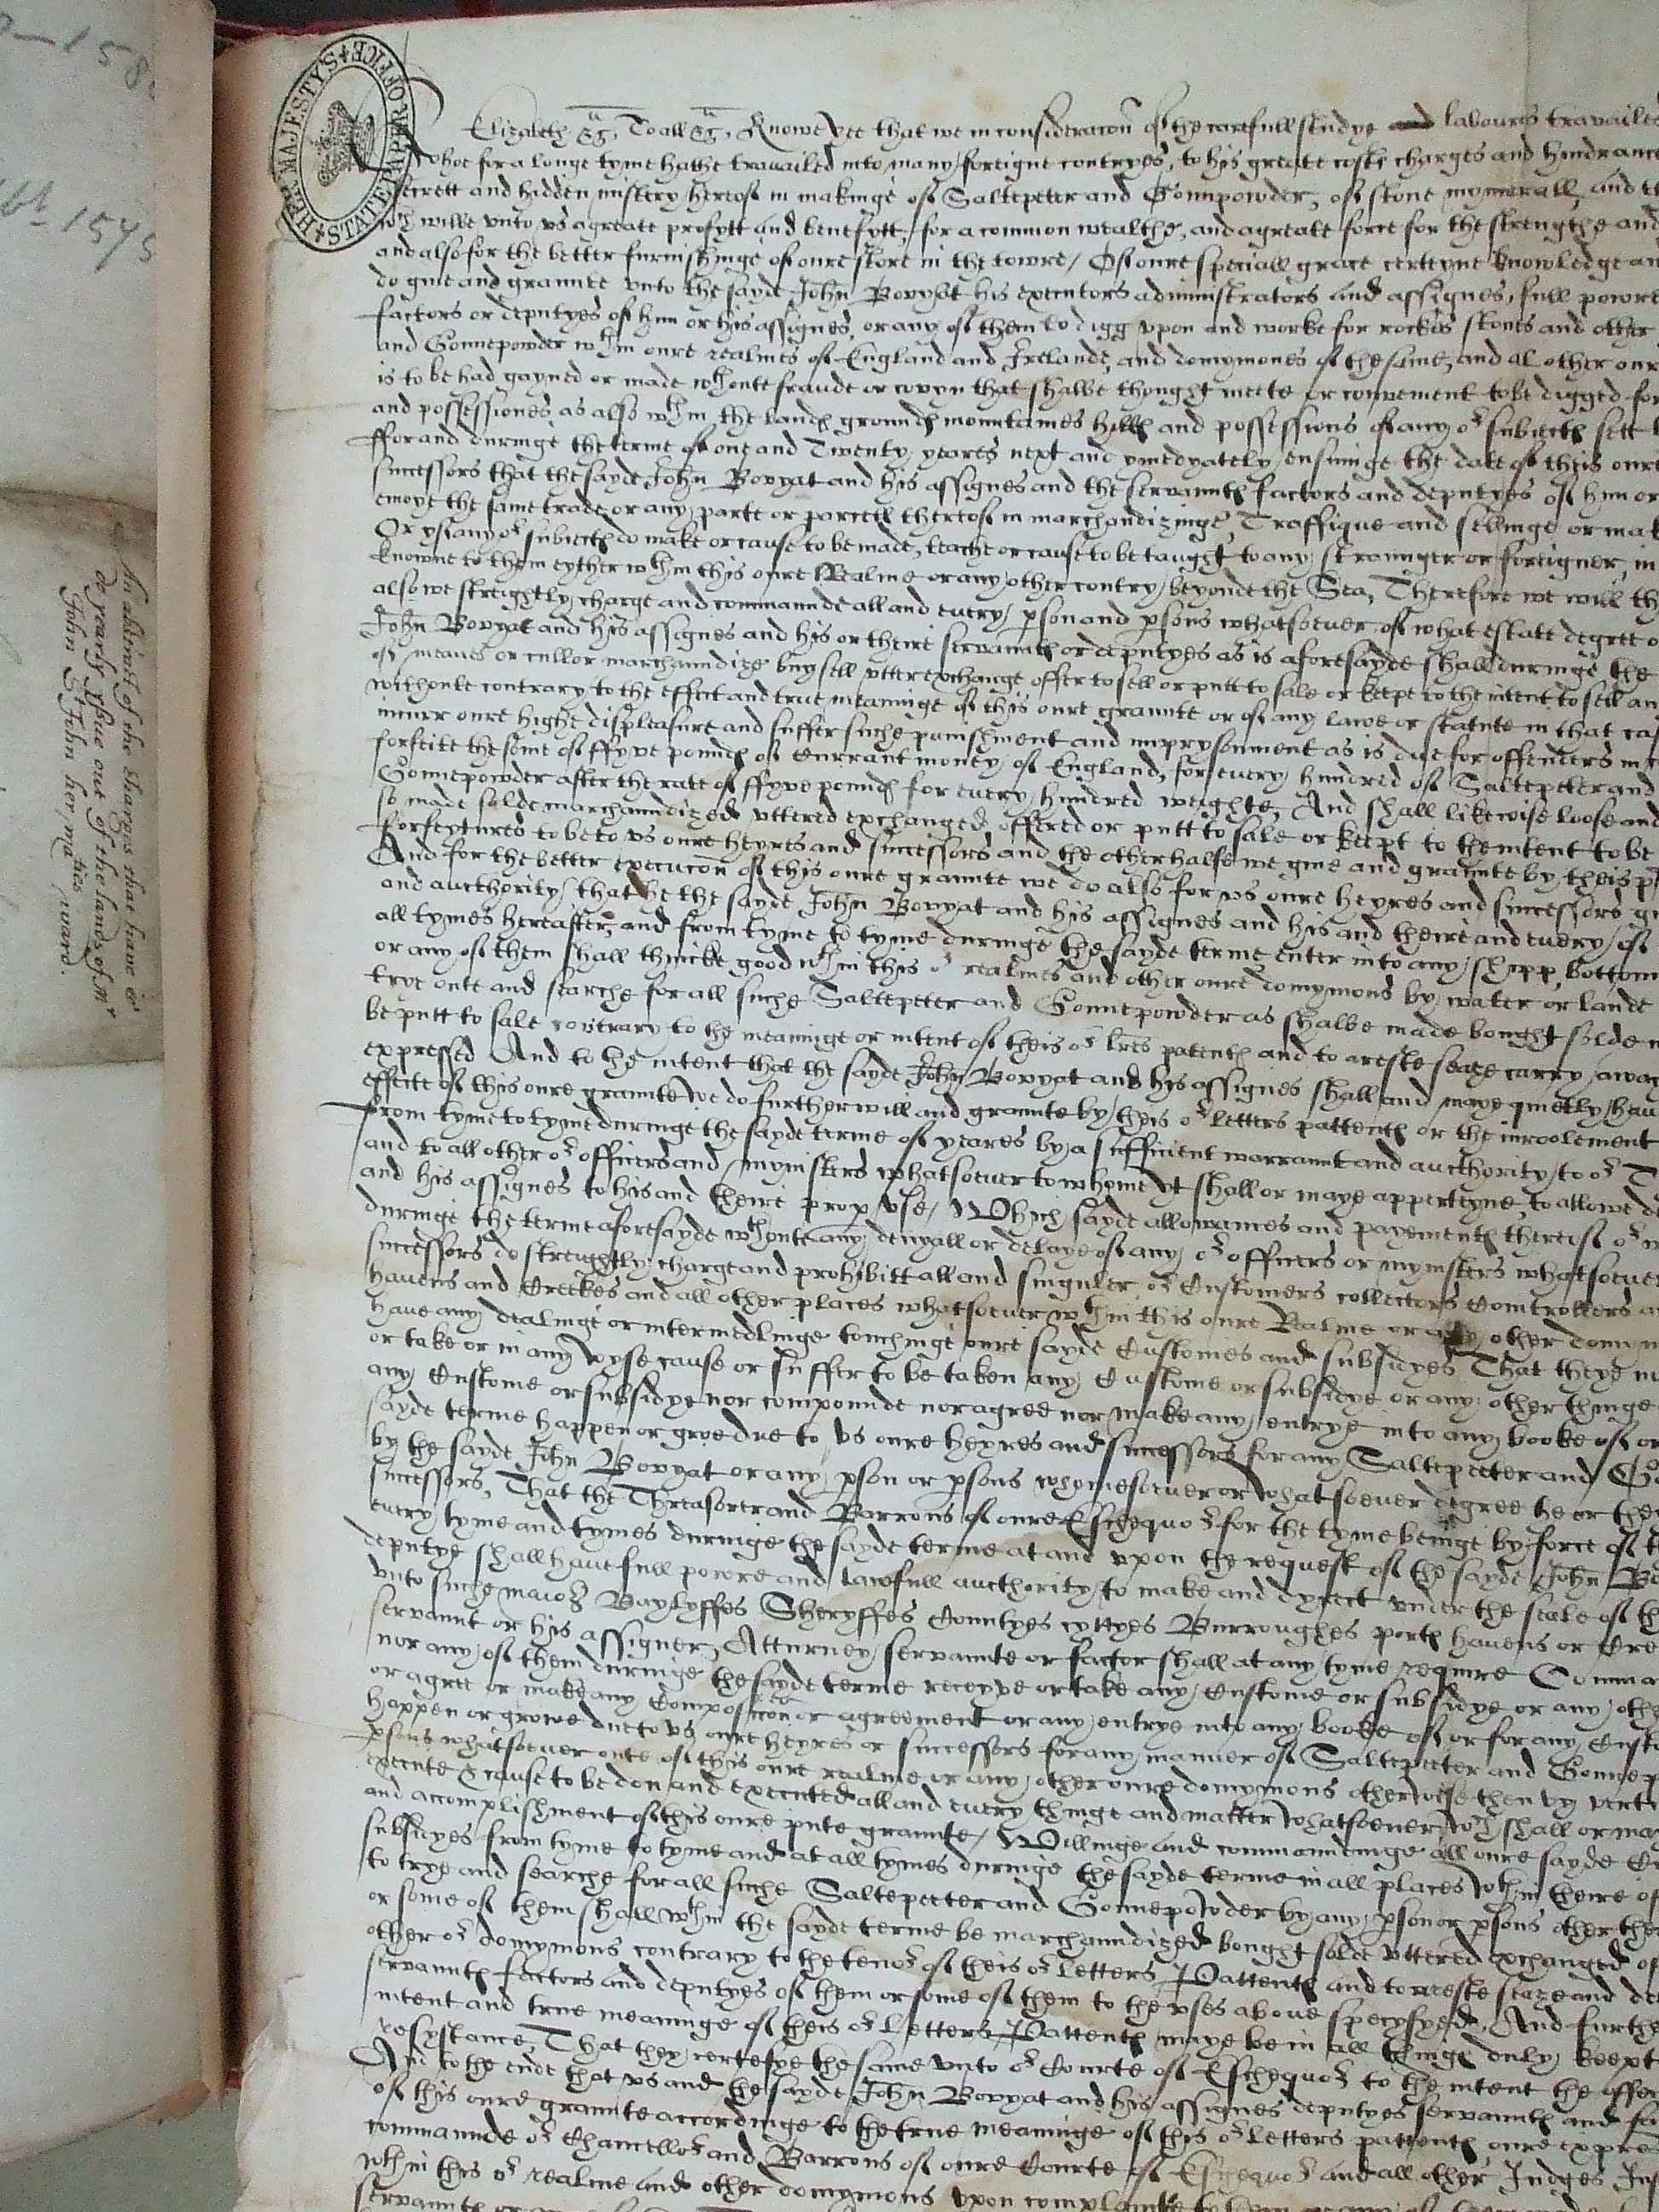 HER MAJESTY'S STATE PAPER OFFICE
1575
An abstract of the charges that have ben
de yearly yssue out of the lands of Mr
John St John her maties ward.
Elizabeth &c. To all &c. Knowe yee that we in consideracon of the carefull studye and labours travailes
whoe for a longe tyme hathe travailed into many foreigne contryes, to his greate coste charges and hindrance
secrett and hidden mistery hereof in makinge of Saltepeter and Gonnpowder, of stone mynerall, and
wch wilbe vnto vs a greate profytt and benefytt, for a common wealthe, and a greate force for the strengthe and
and also for the better furnishinge of oure store in the towre / Of oure speciall grace certeyne knowledge an
do giue and graunte vnto the sayde John Bovyat his executors administrators and assignes, full powre
factors or deputyes of him or his assignes, or any of them to digg vpon and worke for rockes stones and other
and Gonnepowder wthin oure realmes of England and Irelande, and domymones of the same, and al other our
is to be had gayned or made wthoute fraude or covyn that shalbe thought meete or convenient to be digged for
and possessiones, as also wthin the landes groundes mountaines hilles and possessions of any or subiectes sett
ffor and duringe the terme of one and Twenty yeares next and ymedyately ensuinge the date of theis oure
successors that the sayde John Bovyat and his assignes and the servauntes factors and deputyes of him or
enioye the same trade or any parte or parcell thereof in marchandizinge, Traffique and sellinge or mak
Or yf any or subiectes do make or cause to be made, teache or cause to be taught to any straunger or foreigner, in
knowne to them eyther wthin this oure Realme or any other contry beyonde the Sea, Therefore we will th
also we streightly charge and commaunde all and euery person and persons whatsoeuer, of what estate degree o
John Bovyat and his assignes and his or theire servauntes or deputyes as is aforesayde shall duringe the
of meanes or cullor marchaundize buy sell vtter exchange offer to sell or putt to sale or keepe to the intent to sell an
withoute contrary to the effect and true meaninge of this oure graunte or of any lawe or statute in that cas
incurr oure highe displeasure and suffer suche punishment and imprysonment as is due for offenders in
forfeite the some of ffyve poundes of Currant money of England, for euery hundred of Saltepeter and
Gonnepowder after the rate of ffyve poundes for euery hundred weighte, And shall likewise loose and
so made solde marchaundized vttered exchanged offered or putt to sale or keept to the intent to be
forfeytures to be to vs oure heyres and successors and the other halfe we giue and graunte by theis p
And for the better execucon of this oure graunte we do also for vs oure heyres and successors g
and aucthority, that he the sayde John Bovyat and his assignes and his and theire and euery of
all tymes hereafter, and from tyme to tyme duringe the sayde terme enter into any shipp, bottom
or any of them shall thincke good wthin this or realmes and other oure domymons by water or lande
trye oute and searche for all suche Saltepeter and Gonnepowder as shalbe made bought solde
be putt to sale contrary to the meaninge or intent of theis or lres patentes and to areste sease carry awaye
expressed And to the intent that the sayde John Bovyat and his assignes shall and maye quietly haue
effecte of this oure graunte We do further will and graunte by theis or letters pattentes or the inroolement
from tyme to tyme duringe the sayde terme of yeares by a sufficient warraunt and aucthority to or T
and to all other or officers and mynisters whatsoeuer to whome yt shall or maye apperteyne, to allowe
and his assignes to his and theire propr vse / Which sayde allowances and payementes thereof or
duringe the terme aforesayde wthoute any denyall or delaye of any or officers or mynisters whatsoeuer
successors do streightly charge and prohibitt all and singuler or Customers collectors Comtrollers
havens and Creekes and all other places whatsoeuer wthin this oure Realme or any other domym
haue any dealinge or intermedlinge touchinge oure sayde Customes and subsidyes That theye
or take or in any wyse cause or suffer to be taken any Custome or subsidye or any other thinge
any Custome or subsidye nor compounde nor agree nor make any entrye into any booke of or
sayde terme happen or growe due to vs oure heyres and successors for any Saltepeeter and Go
by the sayde John Bovyat or any pson or psons whomesoeuer or whatsoeuer degree he or they
successors, That the Threasorer and Barrons of oure Eschequor for the tyme beinge by force of
euery tyme and tymes duringe the sayde terme at and vpon the request of the sayde John Bo
deputye shall haue full powre and lawfull aucthority to make and dyrect vnder the seale of th
vnto suche maiors Baylyffes Sheryffes Countyes cyttyes Burroughes portes havens or Cre
servaunt or his assignes, Atturney servaunte or factor shall at any tyme require Comma
nor any of them duringe the sayde terme receyve or take any Custome or subsidye or any othe
or agree or make any Composicon or agreement or any entrye into any booke of or for any Custo
happen or growe due to vs oure heyres or successors for any manner of Saltepeeter and Gonnep
psons whatsoeuer oute of this oure realme or any other oure domymons otherwise then by vertu
execute & cause to be don and executed all and euery thinge and matter whatsoeuer wch shall or may
and accomplishment of this oure pnte graunte / Willinge and commaundinge all oure sayde
subsidyes from tyme to tyme and at all tymes duringe the sayde terme in all places wthin theire of
to trye and searche for all suche Saltepeeter and Gonnepowder by any pson or psons other then
or some of them shall wthin the sayde terme be marchaundized bought solde vttered exchanged of
other or domymons contrary to the tenor of theis or letters Pattentes and to areste seaze and de
servauntes factors and deputyes of them or some of them to the vses aboue specyfyed, And furthe
intent and true meaninge of theis or Letters Pattentes maye be in all thinges duly keept
resystance, That they certefye the same vnto or Courte of Eschequor to the intent the offen
And to the ende that vs and the sayde John Bovyat and his assignes deputyes servauntes and fa
of this oure graunte accordinge to the true meaninge of this or letters pattentes oure expre
commaunde or Chancellor and Barrons of oure Courte of Eschequor and all other Judges Jus
wthin this or realme and other domymons vpon complainte